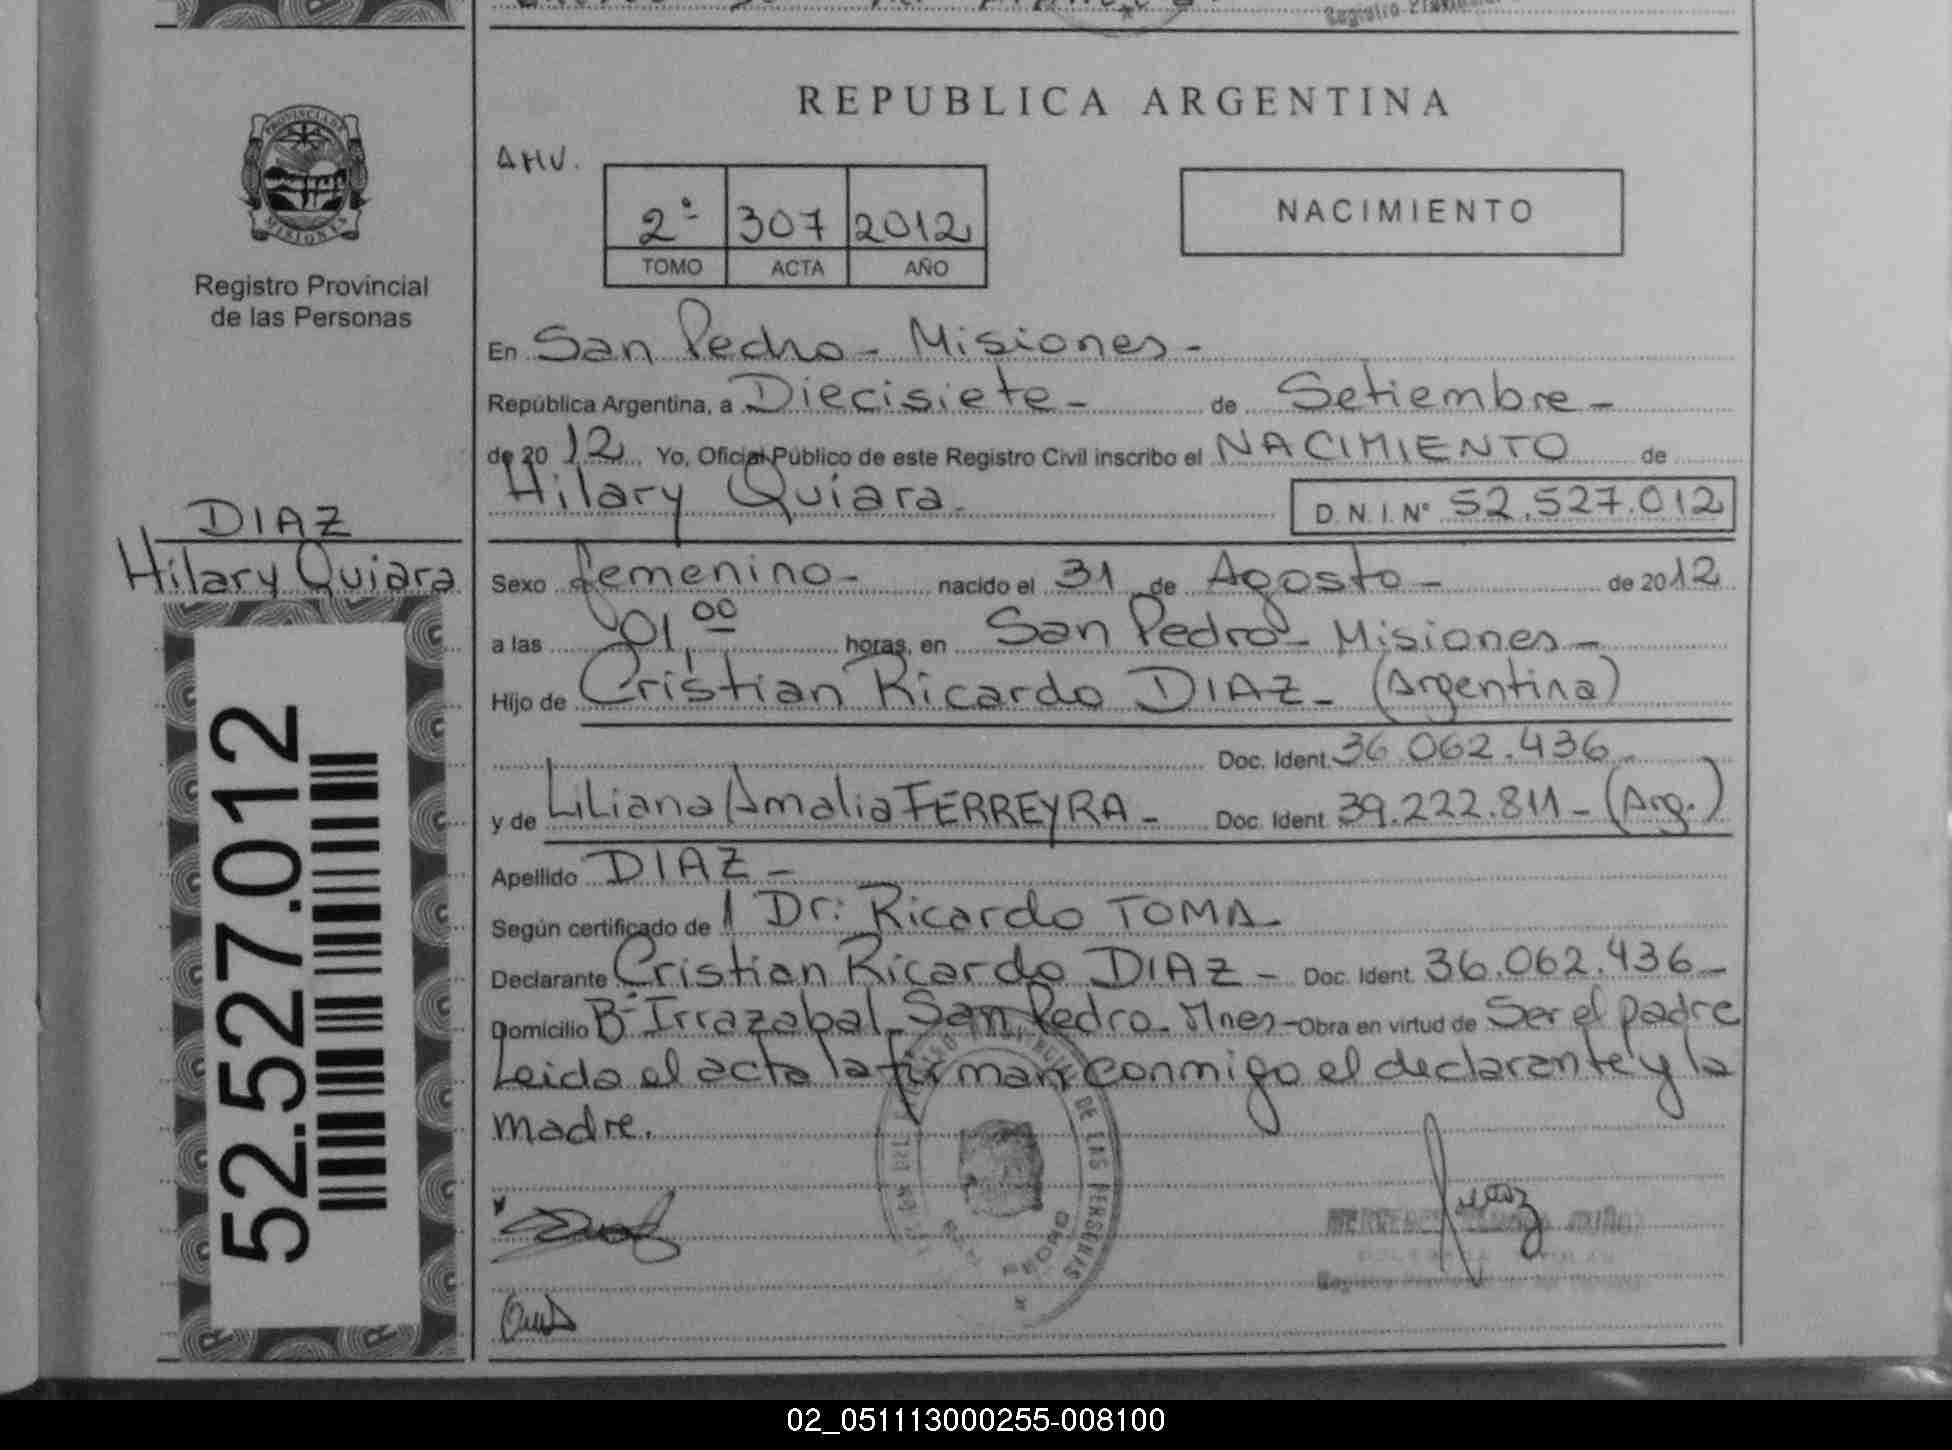 REPUBLICA ARGENTINA
AHV.
2º 307 2012
TOMO ACTA AÑO
NACIMIENTO
PROVINCIA DE
MISIONES
Registro Provincial
de las Personas
En San Pedro - Misiones -
República Argentina, a Diecisiete - de Setiembre -
de 20 12 Yo, Oficial Público de este Registro Civil inscribo el NACIMIENTO de
Hilary Quiara - D.N.I. Nº 52.527.012
DIAZ
Hilary Quiara
52.527.012
Sexo femenino - nacido el 31 de Agosto - de 2012
a las 01,00 horas, en San Pedro - Misiones -
Hijo de Cristian Ricardo DIAZ - (Argentina)
Doc. Ident. 36.062.436 -
y de Liliana Amalia FERREYRA - Doc. Ident. 39.222.811 - (Arg.)
Apellido DIAZ -
Según certificado de Dr: Ricardo TOMA -
Declarante Cristian Ricardo DIAZ - Doc. Ident. 36.062.436 -
Domicilio Bº Irrazabal - San Pedro - Mnes - Obra en virtud de Ser el padre
Leida el acta la firman conmigo el declarante y la
madre.
DE LAS PERSONAS
SAN PEDRO
02_051113000255-008100